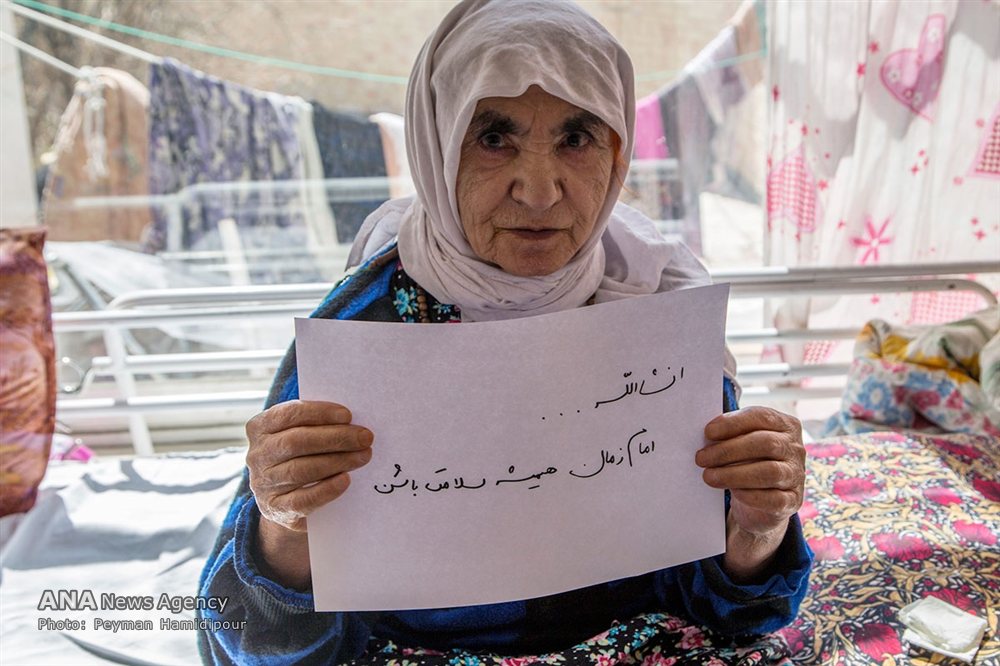 انشاالله ...
امام زمان همیشه سلامت باشن
ANA News Agency
Photo: Peyman Hamidipour